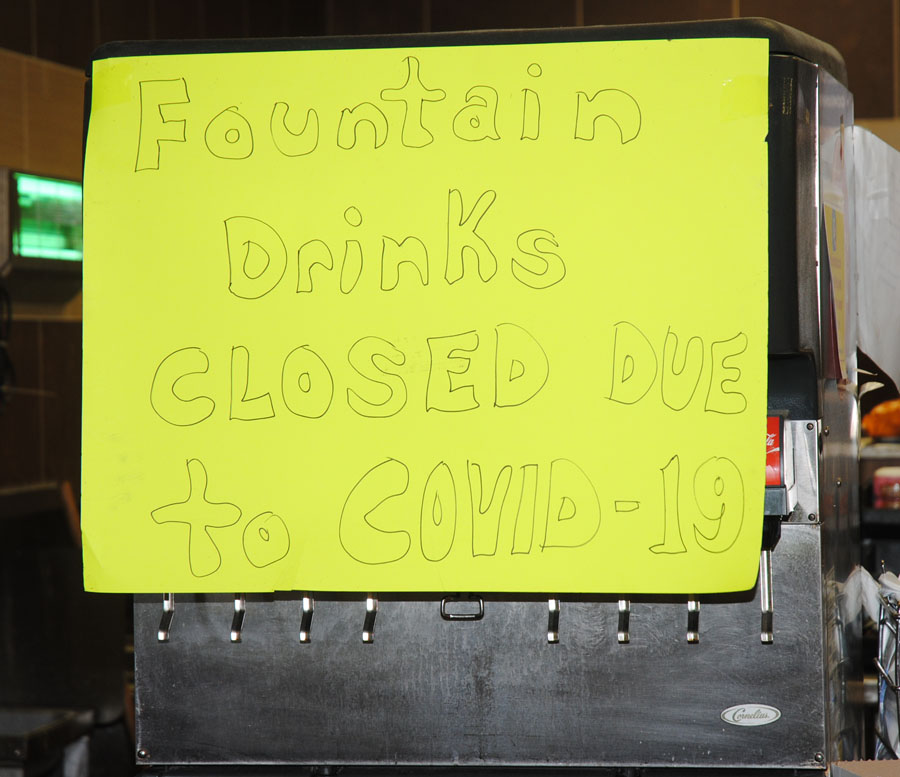 Fountain
Drinks
CLOSED DUE
to COVID-19
Cornelius